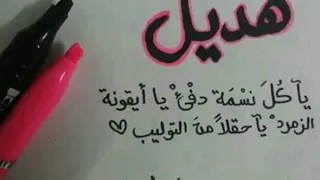 هديل
يآ كُلَ نسْمَة دفْئْ يا أيقونة
الزمرد يآ حقلاً منَ التوليب ♡